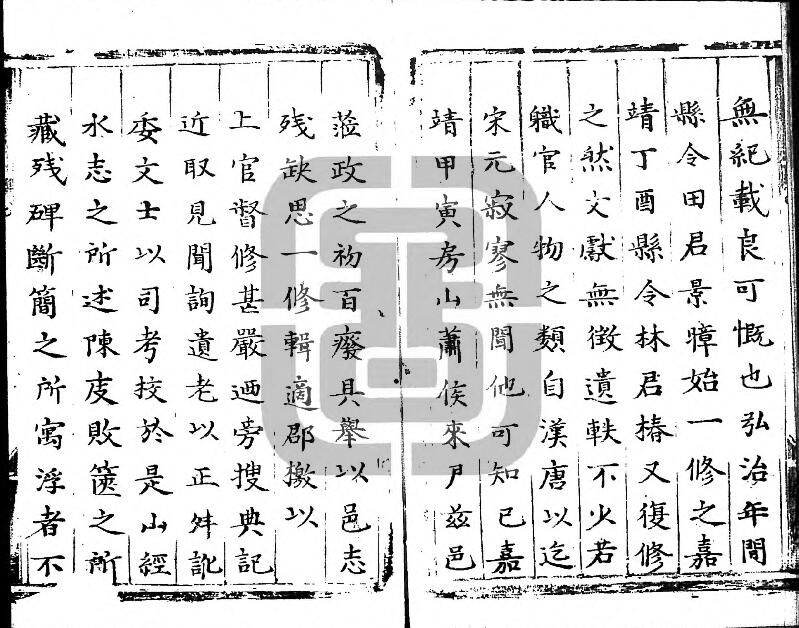 無紀載良可慨也弘治年間
縣令田君景暲始一修之嘉
靖丁酉縣令林君椿又復修
之然文獻無徵遺軼不少若
職官人物之類自漢唐以迄
宋元寂寥無聞他可知已嘉
靖甲寅房山蕭侯來尹茲邑
蒞政之初百癈具舉以邑志
残缺思一修輯適郡檄以
上官督修甚嚴迺旁搜典記
近取見聞詢遺老以正舛訛
委文士以司考挍於是山經
水志之所述陳庋敗篋之所
藏残碑斷簡之所寓浮者不